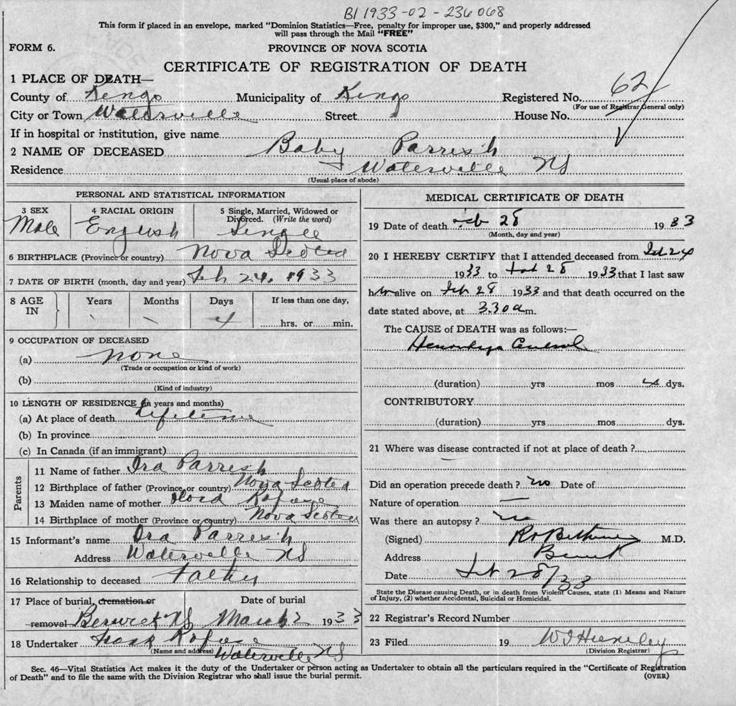 BI 1933-02-236068
This form if placed in an envelope, marked "Dominion Statistics—Free, penalty for improper use, $300," and properly addressed
will pass through the Mail "FREE"
FORM 6. PROVINCE OF NOVA SCOTIA
CERTIFICATE OF REGISTRATION OF DEATH
1 PLACE OF DEATH—
County of Kings Municipality of Kings Registered No. 62
(For use of Registrar General only)
City or Town Waterville Street House No.
If in hospital or institution, give name
2 NAME OF DECEASED Baby Parrish
Residence Waterville NS
(Usual place of abode)
PERSONAL AND STATISTICAL INFORMATION
3 SEX 4 RACIAL ORIGIN 5 Single, Married, Widowed or Divorced. (Write the word)
Male English Single
6 BIRTHPLACE (Province or country) Nova Scotia
7 DATE OF BIRTH (month, day and year) Feb 24, 1933
8 AGE IN Years Months Days If less than one day,
\ \ 4 hrs. or min.
9 OCCUPATION OF DECEASED
(a) None
(Trade or occupation or kind of work)
(b)
(Kind of industry)
10 LENGTH OF RESIDENCE (in years and months)
(a) At place of death Lifetime
(b) In province
(c) In Canada (if an immigrant)
Parents
11 Name of father Ira Parrish
12 Birthplace of father (Province or country) Nova Scotia
13 Maiden name of mother
14 Birthplace of mother (Province or country) Nova Scotia
15 Informant's name Ira Parrish
Address Waterville NS
16 Relationship to deceased Father
17 Place of burial, cremation or removal Date of burial
Berwick NS March 2 1933
18 Undertaker
(Name and address) Waterville NS
MEDICAL CERTIFICATE OF DEATH
19 Date of death Feb 28 1933
(Month, day and year)
20 I HEREBY CERTIFY that I attended deceased from Feb 24
1933 to Feb 28 1933 that I last saw
him alive on Feb 28 1933 and that death occurred on the
date stated above, at 3.30 a m.
The CAUSE of DEATH was as follows:—
Cerebral
(duration) yrs mos 4 dys.
CONTRIBUTORY
(duration) yrs mos dys.
21 Where was disease contracted if not at place of death?
Did an operation precede death? no Date of
Nature of operation —
Was there an autopsy? no
(Signed) M.D.
Address
Date Feb 28/33
State the Disease causing Death, or in death from Violent Causes, state (1) Means and Nature
of Injury, (2) whether Accidental, Suicidal or Homicidal.
22 Registrar's Record Number
23 Filed 19
(Division Registrar)
Sec. 46—Vital Statistics Act makes it the duty of the Undertaker or person acting as Undertaker to obtain all the particulars required in the "Certificate of Registration
of Death" and to file the same with the Division Registrar who shall issue the burial permit. (OVER)